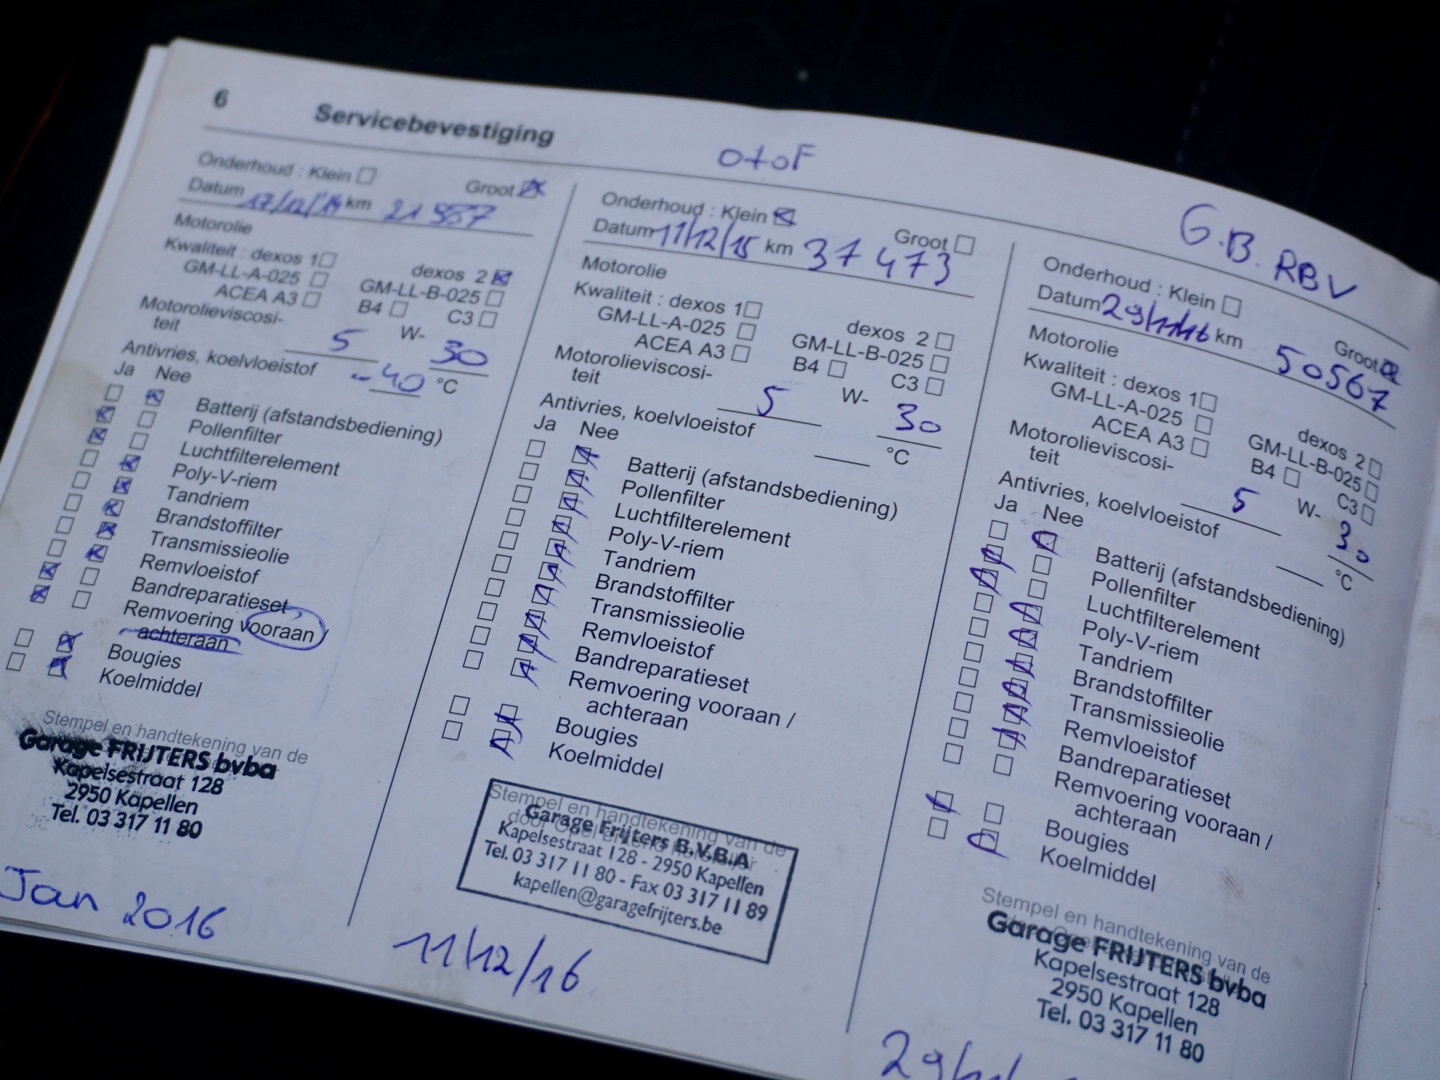 6 Servicebevestiging
Onderhoud : Klein
Groot
Datum 17/12/14 km 21 587
Motorolie
Kwaliteit : dexos 1
dexos 2
GM-LL-A-025
GM-LL-B-025
ACEA A3
B4
C3
Motorolieviscosi-
teit
5 W- 30
Antivries, koelvloeistof -40 °C
Ja Nee
Batterij (afstandsbediening)
Pollenfilter
Luchtfilterelement
Poly-V-riem
Tandriem
Brandstoffilter
Transmissieolie
Remvloeistof
Bandreparatieset
Remvoering vooraan /
achteraan
Bougies
Koelmiddel
Stempel en handtekening van de
Garage FRIJTERS bvba
Kapelsestraat 128
2950 Kapellen
Tel. 03 317 11 80
Jan 2016
OtoF
Onderhoud : Klein
Groot
Datum 11/12/15 km 37 473
Motorolie
Kwaliteit : dexos 1
dexos 2
GM-LL-A-025
GM-LL-B-025
ACEA A3
B4
C3
Motorolieviscosi-
teit
5 W- 30
Antivries, koelvloeistof °C
Ja Nee
Batterij (afstandsbediening)
Pollenfilter
Luchtfilterelement
Poly-V-riem
Tandriem
Brandstoffilter
Transmissieolie
Remvloeistof
Bandreparatieset
Remvoering vooraan /
achteraan
Bougies
Koelmiddel
Stempel en handtekening van de
Garage Frijters B.V.B.A
Kapelsestraat 128 - 2950 Kapellen
Tel. 03 317 11 80 - Fax 03 317 11 89
kapellen@garagefrijters.be
11/12/16
G.B. RBV
Onderhoud : Klein
Groot
Datum 29/11/16 km 50567
Motorolie
Kwaliteit : dexos 1
dexos 2
GM-LL-A-025
GM-LL-B-025
ACEA A3
B4
C3
Motorolieviscosi-
teit
5 W- 30
Antivries, koelvloeistof °C
Ja Nee
Batterij (afstandsbediening)
Pollenfilter
Luchtfilterelement
Poly-V-riem
Tandriem
Brandstoffilter
Transmissieolie
Remvloeistof
Bandreparatieset
Remvoering vooraan /
achteraan
Bougies
Koelmiddel
Stempel en handtekening van de
Garage FRIJTERS bvba
Kapelsestraat 128
2950 Kapellen
Tel. 03 317 11 80